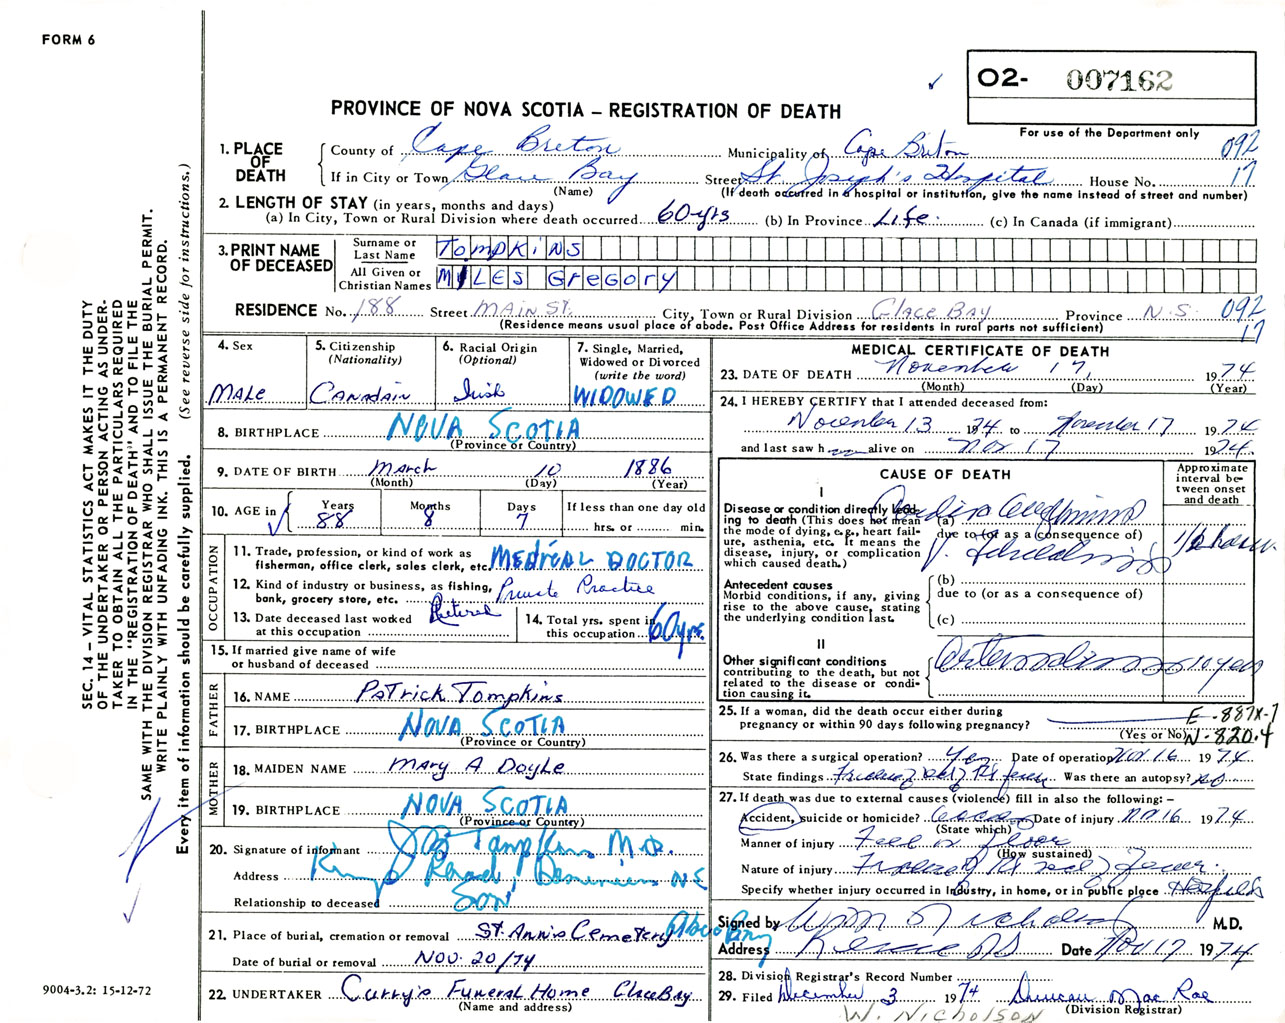 FORM 6
O2- 007162
For use of the Department only
PROVINCE OF NOVA SCOTIA – REGISTRATION OF DEATH
1. PLACE OF DEATH
County of Cape Breton Municipality of Cape Breton 092
If in City or Town Glace Bay Street St. Joseph's Hospital House No. 17
(Name) (If death occurred in a hospital or institution, give the name instead of street and number)
2. LENGTH OF STAY (in years, months and days)
(a) In City, Town or Rural Division where death occurred 60 yrs (b) In Province Life. (c) In Canada (if immigrant)
3. PRINT NAME OF DECEASED
Surname or Last Name TOMPKINS
All Given or Christian Names MILES GREGORY
RESIDENCE No. 188 Street MAIN ST. City, Town or Rural Division GLACE BAY Province N.S. 092
(Residence means usual place of abode. Post Office Address for residents in rural parts not sufficient) 17
4. Sex MALE
5. Citizenship (Nationality) CANADAIN
6. Racial Origin (Optional) Irish
7. Single, Married, Widowed or Divorced (write the word) WIDOWED
8. BIRTHPLACE NOVA SCOTIA
(Province or Country)
9. DATE OF BIRTH March 10 1886
(Month) (Day) (Year)
10. AGE in Years 88 Months 8 Days 7 If less than one day old hrs. or min.
OCCUPATION
11. Trade, profession, or kind of work as fisherman, office clerk, sales clerk, etc. MEDICAL DOCTOR
12. Kind of industry or business, as fishing, bank, grocery store, etc. Private Practice
13. Date deceased last worked at this occupation Retired
14. Total yrs. spent in this occupation 60 yrs.
15. If married give name of wife or husband of deceased
FATHER
16. NAME Patrick Tompkins
17. BIRTHPLACE NOVA SCOTIA
(Province or Country)
MOTHER
18. MAIDEN NAME Mary A Doyle
19. BIRTHPLACE NOVA SCOTIA
(Province or Country)
20. Signature of informant Tompkins M.D.
Address King's Road, Dominion NS
Relationship to deceased SON
21. Place of burial, cremation or removal St. Ann's Cemetery Glace Bay
Date of burial or removal NOV. 20/74
22. UNDERTAKER Curry's Funeral Home Glace Bay
(Name and address)
MEDICAL CERTIFICATE OF DEATH
23. DATE OF DEATH November 17, 1974
(Month) (Day) (Year)
24. I HEREBY CERTIFY that I attended deceased from:
November 13 1974 to November 17 1974
and last saw h alive on Nov 17 1974.
CAUSE OF DEATH
Approximate interval between onset and death
I
Disease or condition directly leading to death (This does not mean the mode of dying, e.g., heart failure, asthenia, etc. It means the disease, injury, or complication which caused death.)
(a)
due to (or as a consequence of)
Antecedent causes
Morbid conditions, if any, giving rise to the above cause, stating the underlying condition last.
(b)
due to (or as a consequence of)
(c)
II
Other significant conditions contributing to the death, but not related to the disease or condition causing it.
10 years
25. If a woman, did the death occur either during pregnancy or within 90 days following pregnancy?
(Yes or No)
E-887X-7
N-820.4
26. Was there a surgical operation? Yes Date of operation Nov 16 1974
State findings Was there an autopsy? no
27. If death was due to external causes (violence) fill in also the following: –
Accident, suicide or homicide? Date of injury Nov 16 1974
(State which)
Manner of injury Fell on floor
(How sustained)
Nature of injury
Specify whether injury occurred in Industry, in home, or in public place Hospital
Signed by Wm Nicholson M.D.
Address Date Nov 17 1974
28. Division Registrar's Record Number
29. Filed December 3 1974 Duncan MacRae
(Division Registrar)
W. NICHOLSON
SEC. 14 – VITAL STATISTICS ACT MAKES IT THE DUTY
OF THE UNDERTAKER OR PERSON ACTING AS UNDER-
TAKER TO OBTAIN ALL THE PARTICULARS REQUIRED
IN THE "REGISTRATION OF DEATH" AND TO FILE THE
SAME WITH THE DIVISION REGISTRAR WHO SHALL ISSUE THE BURIAL PERMIT.
WRITE PLAINLY WITH UNFADING INK. THIS IS A PERMANENT RECORD.
Every item of information should be carefully supplied. (See reverse side for instructions.)
9004-3.2: 15-12-72